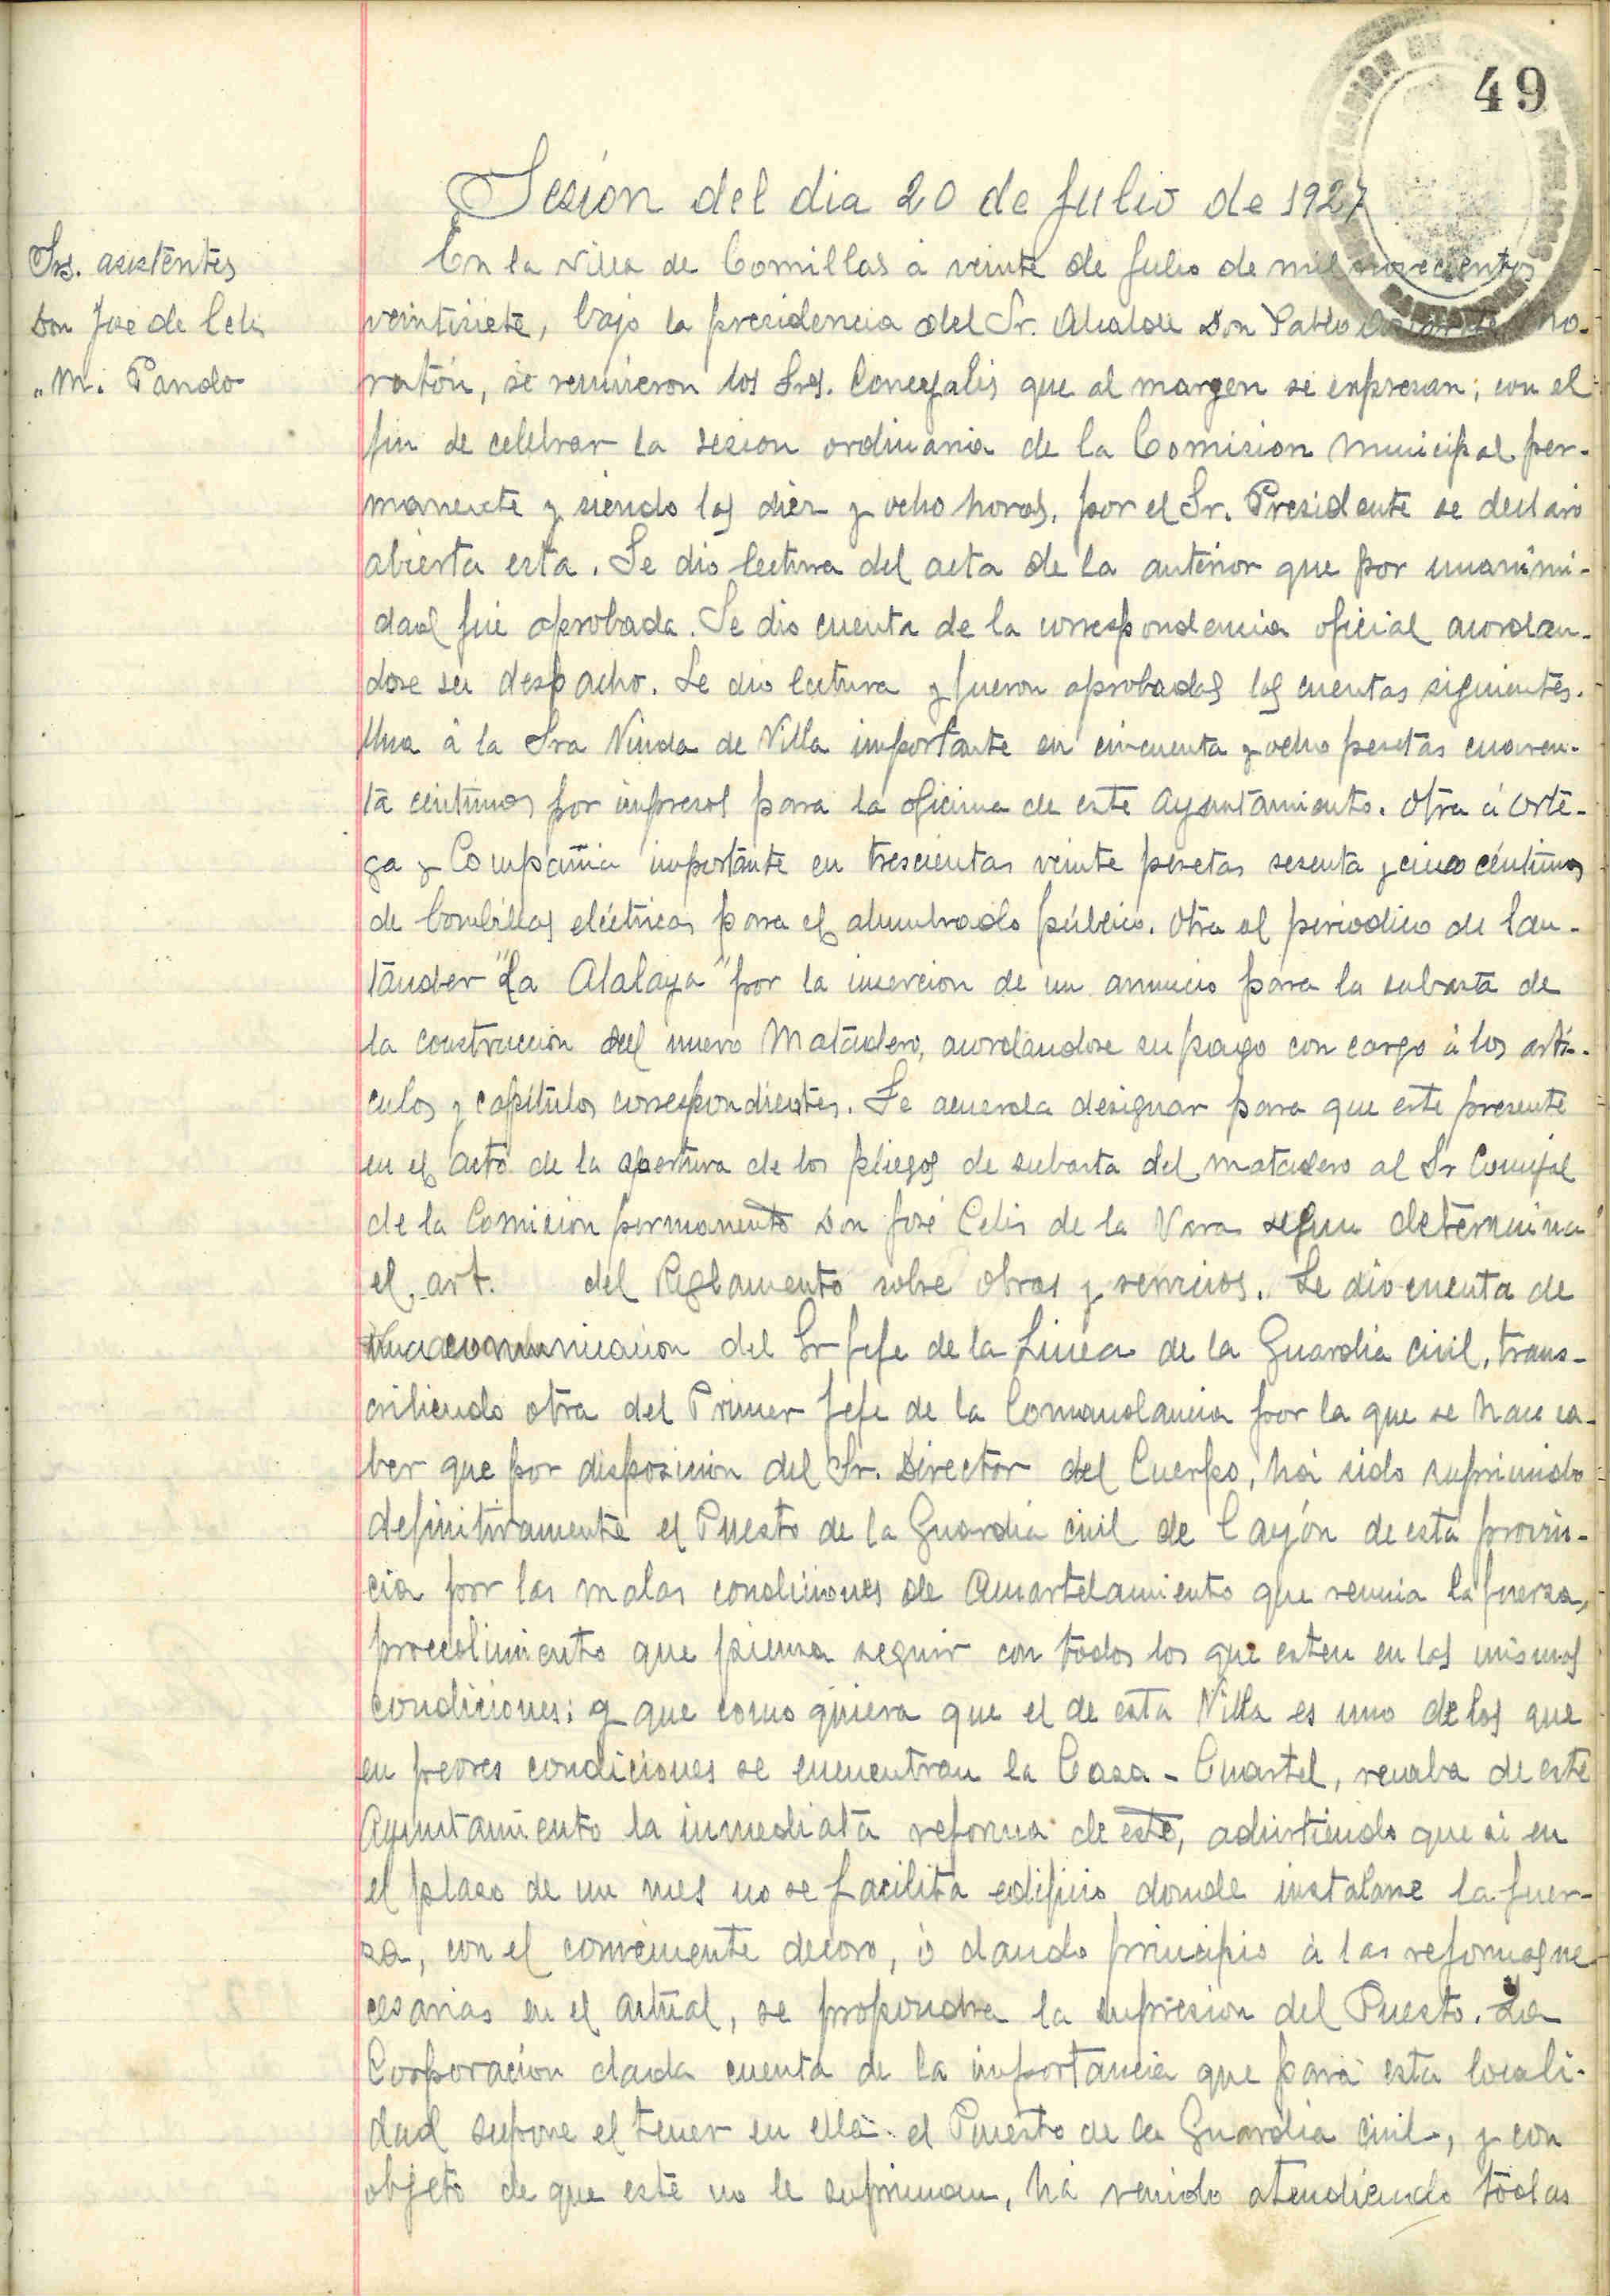 49
Sesión del dia 20 de Julio de 1927
Srs. asistentes
Don José de Celis
" M. Pando
En la Villa de Comillas á veinte de Julio de mil novecientos
veintisiete, bajo la presidencia del Sr. Alcalde Don Pablo
ratón, se reunieron los Srs. Concejales que al margen se expresan; con el
fin de celebrar la sesion ordinaria de la Comision Municipal per-
manente y siendo las diez y ocho horas, por el Sr. Presidente se declaró
abierta esta. Se dió lectura del acta de la anterior que por unanimi-
dad fué aprobada. Se dió cuenta de la correspondencia oficial acordan-
dose su despacho. Se dio lectura y fueron aprobadas las cuentas siguientes.
Una á la Sra Viuda de Villa importante en cincuenta y ocho pesetas cuaren-
ta céntimos por impresos para la oficina de este Ayuntamiento. Otra á Orte-
ga y Compañia importante en trescientas veinte pesetas sesenta y cinco céntimos
de bombillas eléctricas para el alumbrado público. Otra al periodico de San-
tander "La Atalaya" por la insercion de un anuncio para la subasta de
la construccion del nuevo Matadero, acordandose su pago con cargo á los artí-
culos y capítulos correspondientes. Se acuerda designar para que esté presente
en el acto de la apertura de los pliegos de subasta del matadero al Sr Concejal
de la Comision permanente Don José Celis de la Vara segun determina
el art. del Reglamento sobre obras y servicios. Se dio cuenta de
una comunicación del Sr Jefe de la Linea de la Guardia civil, trans-
cribiendo otra del Primer Jefe de la Comandancia por la que se hace sa-
ber que por disposicion del Sr. Director del Cuerpo, há sido suprimido
definitivamente el Puesto de la Guardia civil de Cayón de esta provin-
cia por las malas condiciones de Acuartelamiento que reunia la fuerza,
procedimiento que piensa seguir con todos los que esten en las mismas
condiciones; y que como quiera que el de esta Villa es uno de los que
en peores condiciones se encuentran la Casa-Cuartel, recaba de este
Ayuntamiento la inmediata reforma de este, advirtiendo que si en
el plazo de un mes no se facilita edificio donde instalarse la fuer-
za, con el conveniente decoro, ó dando principio á las reformas ne-
cesarias en el actual, se propondra la supresion del Puesto. La
Corporación dada cuenta de la importancia que para esta locali-
dad supone el tener en ella el Puesto de la Guardia Civil, y con
objeto de que este no le supriman, há venido atendiendo todas